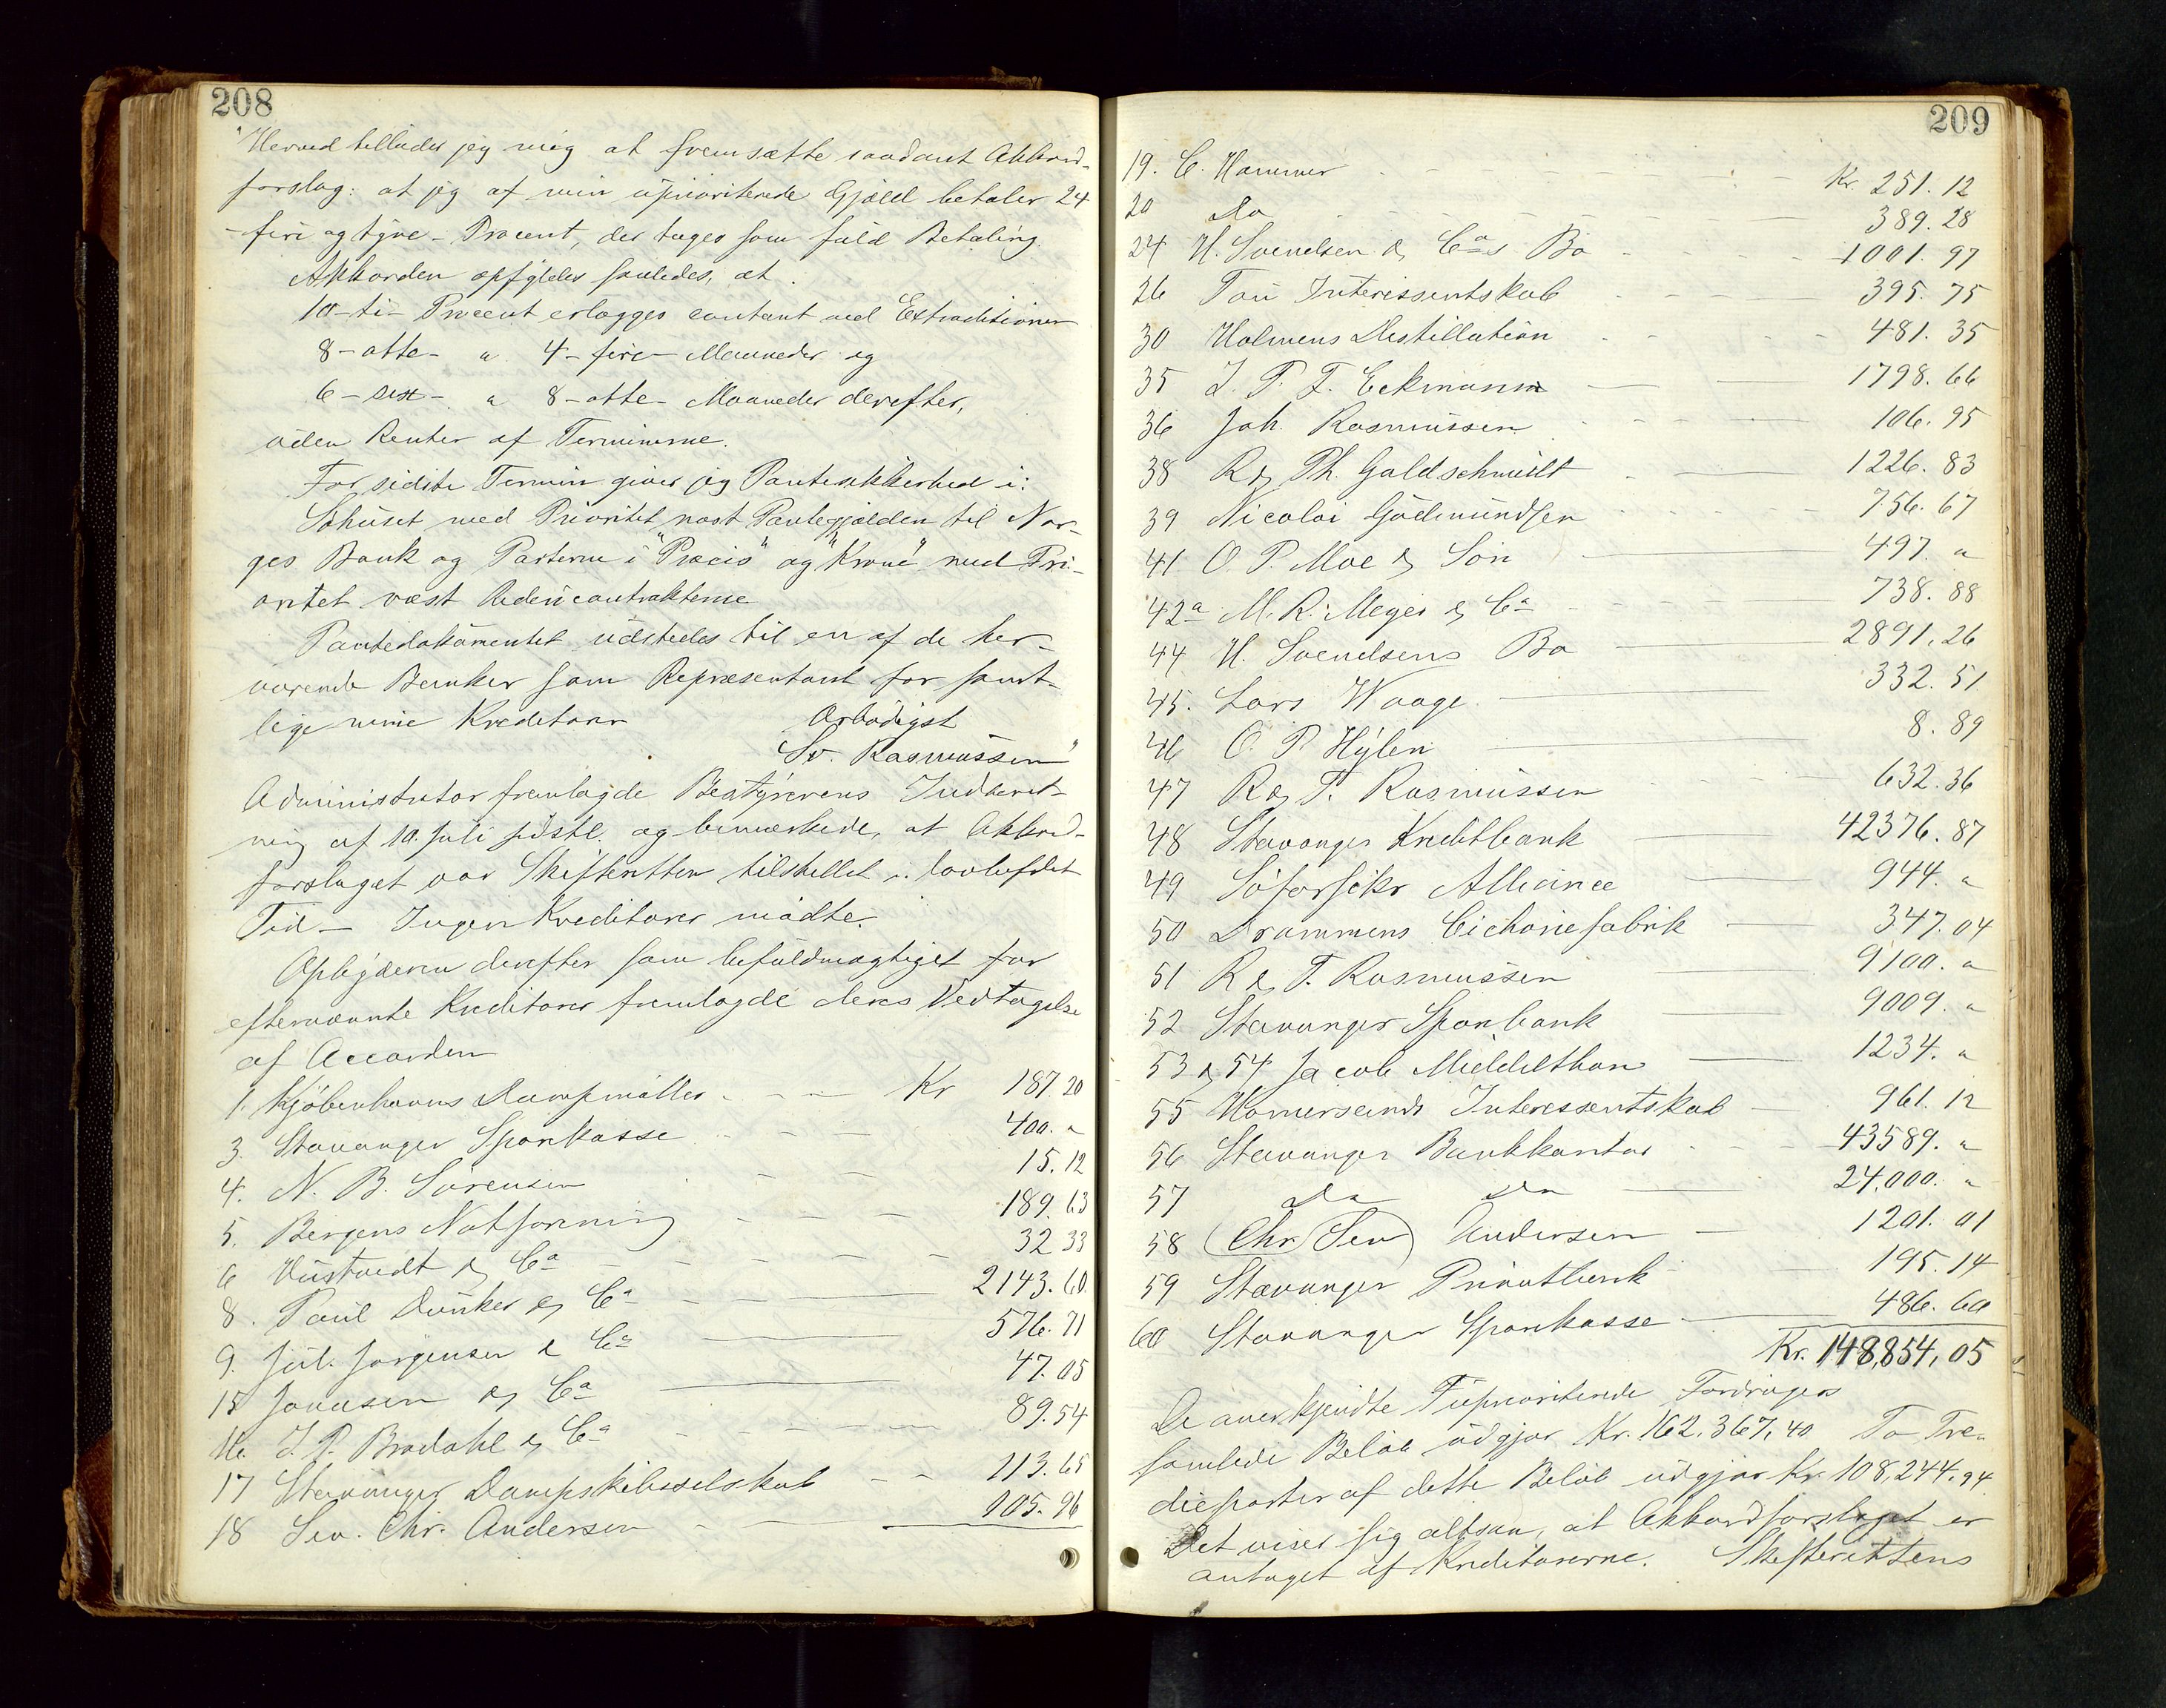 208
"Herved tillader jeg mig at fremsætte saadant Akkord-
forslag: at jeg af min uprioriterede Gjæld betaler 24
-fire og tyve- Procent, der tages som fuld Betaling.
Akkorden opfyldes saaledes, at
10-ti- Procent erlægges contant ved Extraditionen
8-otte- " 4-fire- Maaneder og
6-sex- " 8-otte- Maaneder derefter,
uden Renter af Terminerne.
For sidste Termin giver jeg Pantesikkerhed i:
Søhuset med Prioritet næst Pantegjælden til Nor-
ges Bank og Parterne i "Præcis" og "Krone" med Pri-
oritet næst Redericontrakterne
Pantedokumentet udstedes til en af de her-
værende Banker som Repræsentant for samt-
lige mine Kreditorer Ærbødigst
Sv. Rasmussen"
Administrator fremlagde Bestyrerens Indberet-
ning af 10. Juli sidstl. og bemærkede, at Akkord-
forslaget var Skifteretten tilstillet i lovbefalet
Tid - Ingen Kreditorer mødte.
Oplyseren derefter som befuldmægtiget for
efternævnte Kreditorer fremlagde deres Vedtagelse
af Accorden
1. Kjöbenhavns Dampmöller - - - Kr 187.20
3. Stavanger Sparkasse - - - 400. "
4. N. B. Sörensen - - - 15.12
5. Bergens Notforretning - - - 189.63
6 Hustvedt & Ca - - - 32 33
8. Paul Dunker & Ca - - 2143.60
9. Jul. Jørgensen & Ca 576.71
15 Jonasen & Ca 47.05
16. I. P. Brodahl & Ca - - - 89.54
17 Stavanger Dampskibsselskab - - 113.65
18 Sev. Chr. Andersen - 105.96
209
19. C. Hammer - - - Kr. 251.12
20 Do - - - 389.28
24 H. Svendsen & Cas Bo - - - 1001.97
26 Tou Interessentskab - - - 395.75
30 Holmens Destillation - - - 481.35
35 I. P. F. Eckmann 1798.66
36 Joh. Rasmussen - - - 106.95
38 R & Ph. Goldschmidt - 1226.83
39 Nicolai Gudmundsen - - - 756.67
41 O. P. Moe & Sön 497. "
42a M. R. Meyer & Ca - - - 738.88
44 H. Svendsens Bo 2891.26
45. Lars Waage 332.51
46 O. P. Hylen 8.89
47 R & T. Rasmussen - - - 632.36
48 Stavanger Kreditbank 42376.87
49 Söforsikr Alliance 944. "
50 Drammens Cichoriefabrik 347.04
51 R & T. Rasmussen 9100. "
52 Stavanger Sparbank 9009. "
53 & 54 Jacob Middelthon 1234. "
55 Homersands Interessentskab - 961.12
56 Stavanger Bankkontor - - - 43589. "
57 Do Do 24.000. "
58 (Chr Sev) Andersen 1201.01
59 Stavanger Privatbank - 195.14
60 Stavanger Sparkasse 486.60
Kr. 148,854,05
De anerkjendte Uprioriterede Fordringers
samlede Beløb udgjør Kr. 162,367,40 To Tre-
dieparter af dette Beløb udgjør Kr. 108,244.94.
Det viser sig altsaa, at Akkordforslaget er
antaget af Kreditorerne. Skifterettens